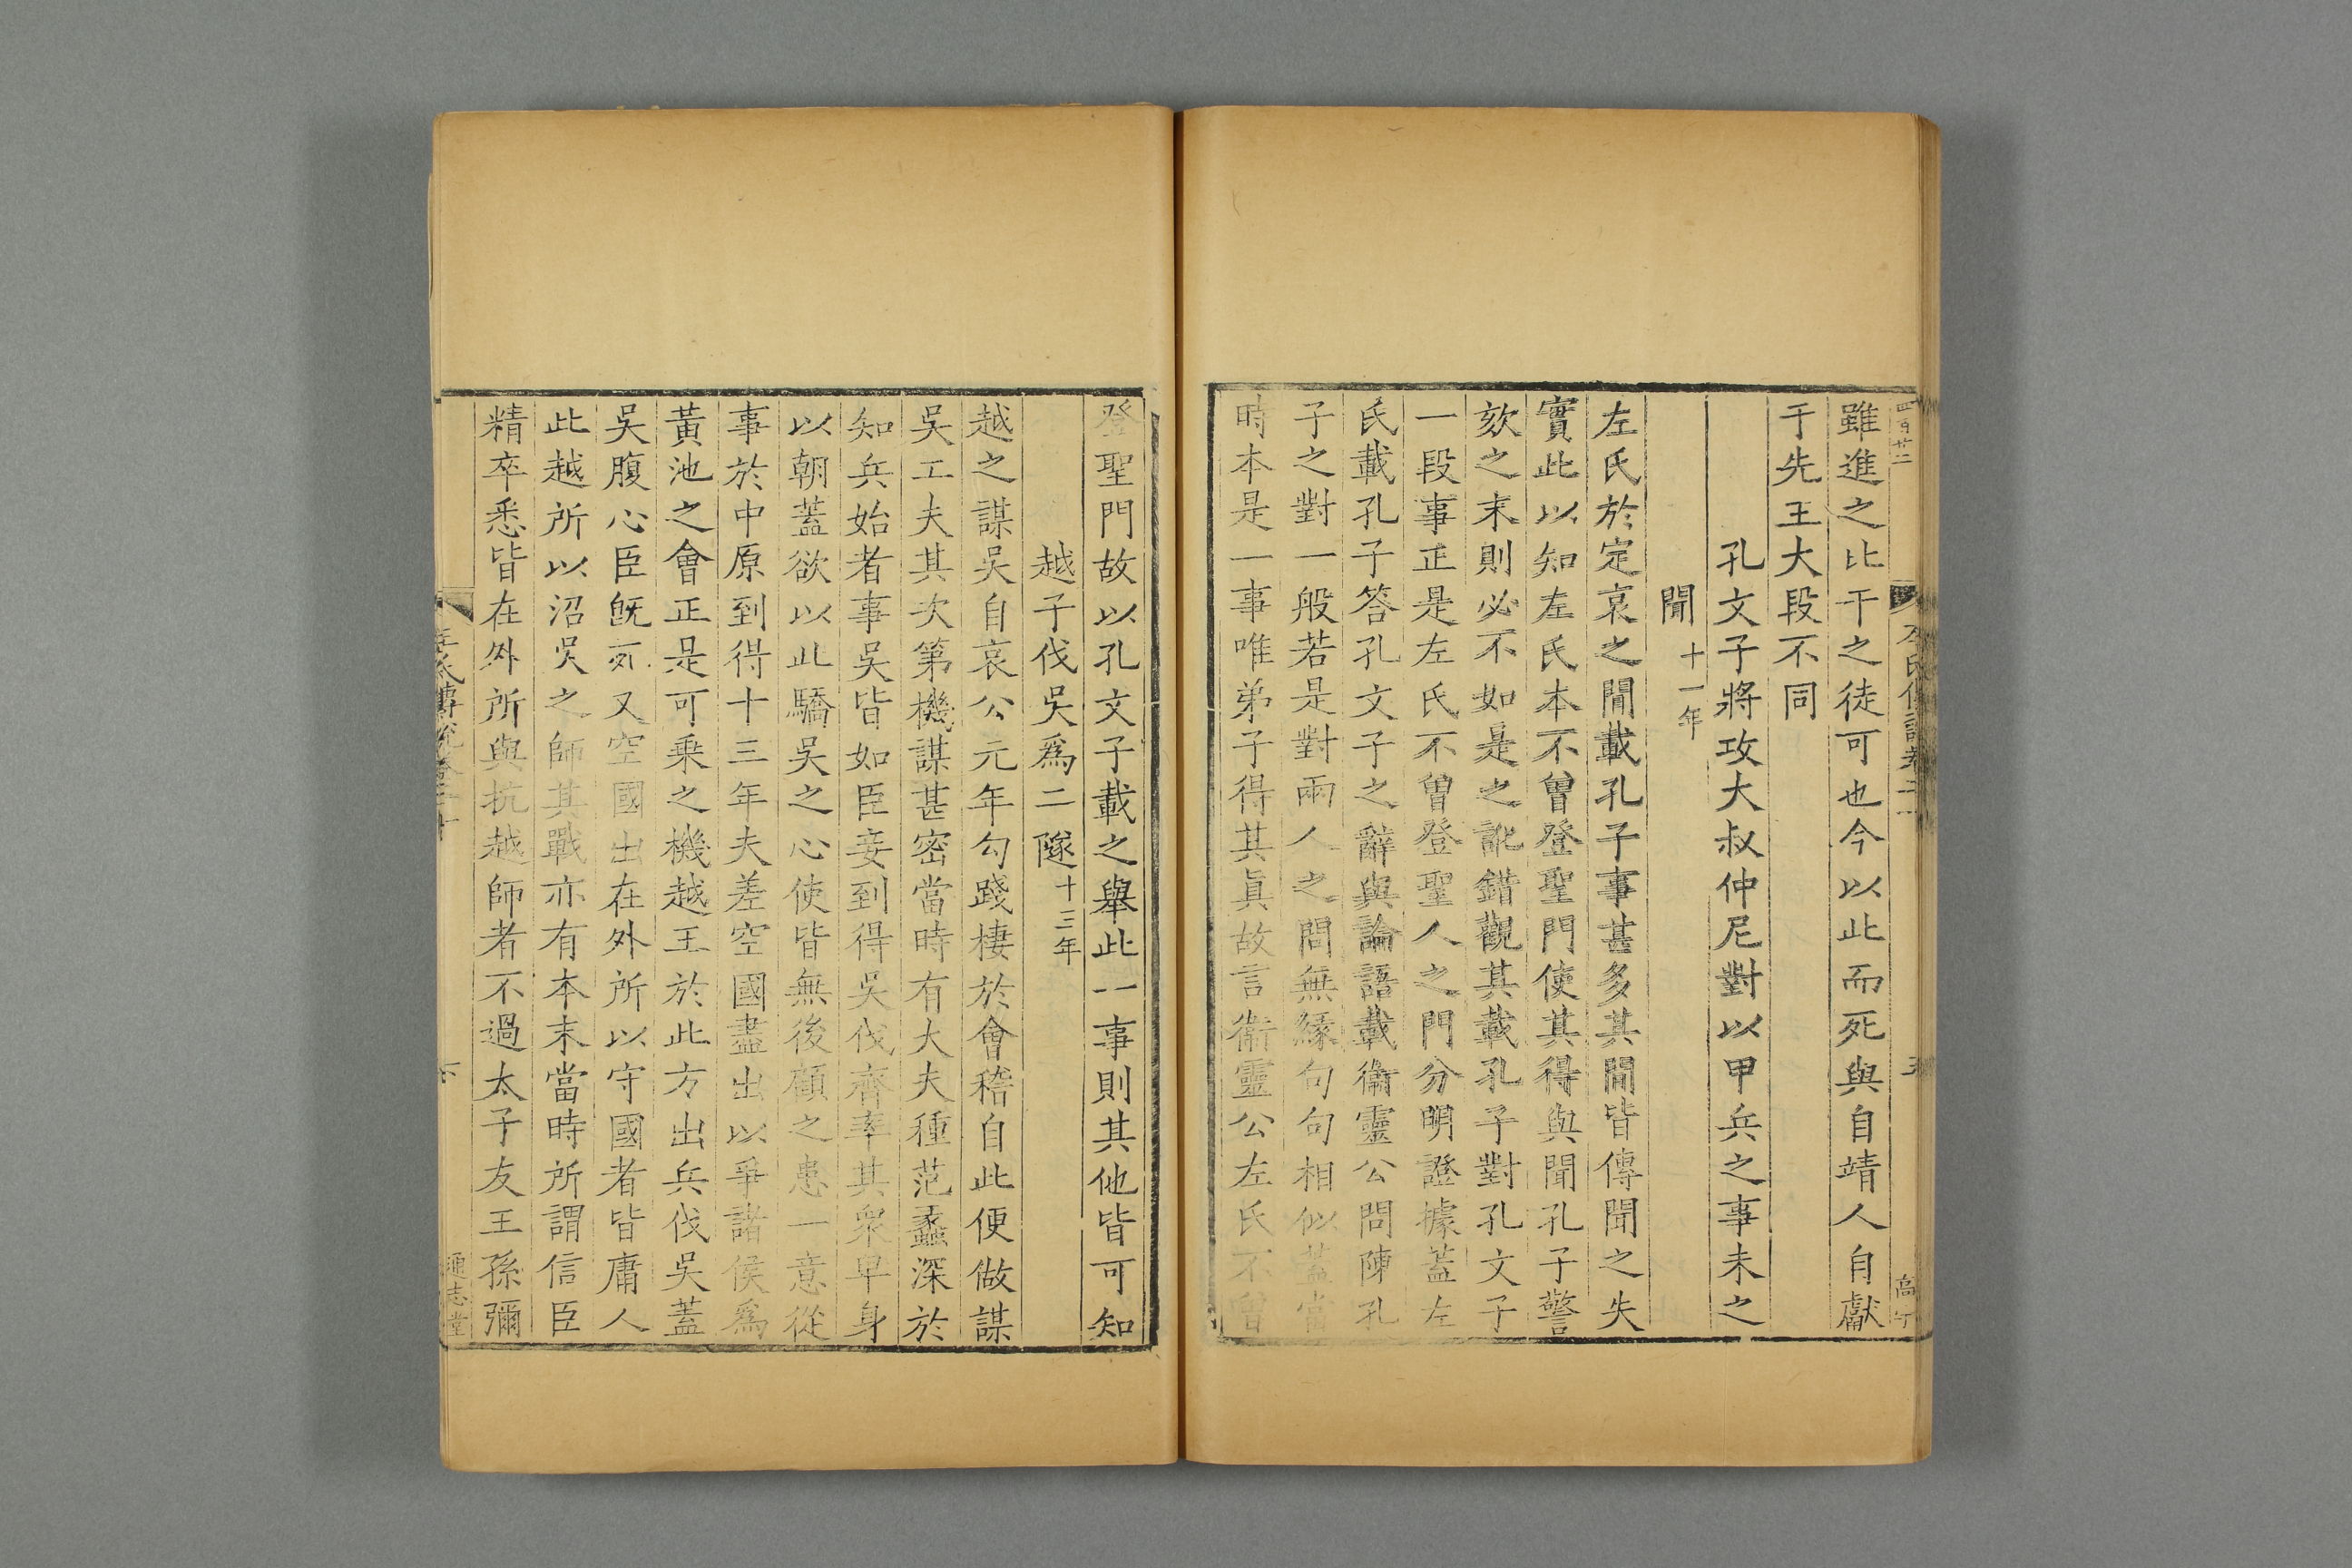 四百廿二
雖進之比干之徒可也今以此而死與自靖人自獻
于先王大段不同
孔文子將攻大叔仲尼對以甲兵之事未之
聞十一年
左氏於定哀之間載孔子事甚多其間皆傳聞之失
實此以知左氏本不曾登聖門使其得與聞孔子警
欬之末則必不如是之訛錯觀其載孔子對孔文子
一段事正是左氏不曾登聖人之門分明證據蓋左
氏載孔子答孔文子之辭與論語載衞靈公問陳孔
子之對一般若是對兩人之問無緣句句相似蓋當
時本是一事唯弟子得其眞故言衞靈公左氏不曾
登聖門故以孔文子載之舉此一事則其他皆可知
越子伐吳爲二隧十三年
越之謀吳自哀公元年勾踐棲於會稽自此便做謀
吳工夫其次第機謀甚密當時有大夫種范蠡深於
知兵始者事吳皆如臣妾到得吳伐齊率其衆早身
以朝蓋欲以此驕吳之心使皆無後顧之患一意從
事於中原到得十三年夫差空國盡出以爭諸侯爲
黃池之會正是可乘之機越王於此方出兵伐吳蓋
吳腹心臣旣死又空國出在外所以守國者皆庸人
此越所以沼吳之師其戰亦有本末當時所謂信臣
精卒悉皆在外所與抗越師者不過太子友王孫彌
通志堂